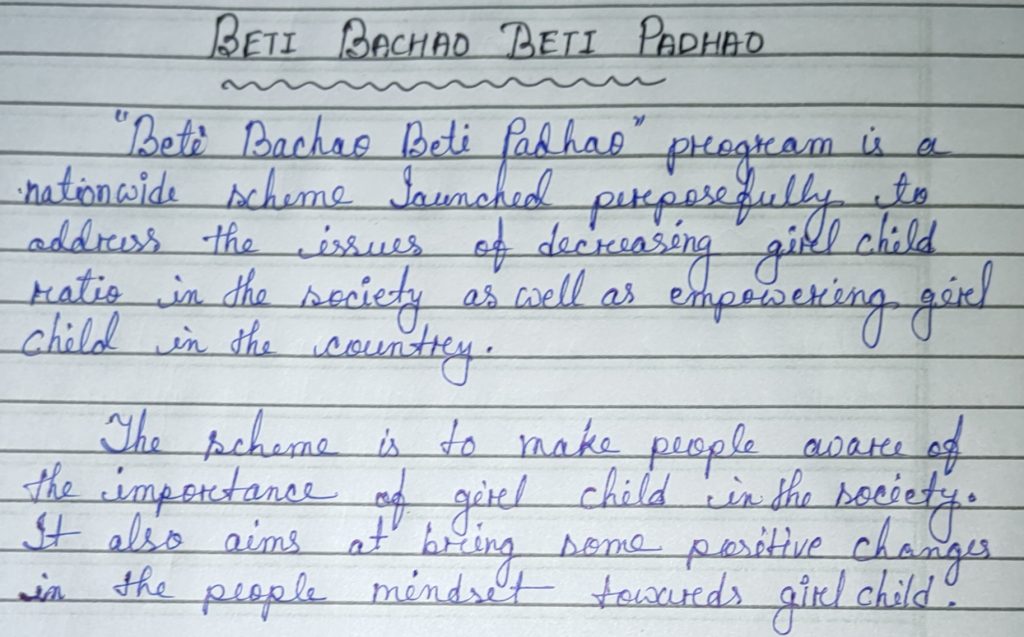 BETI BACHAO BETI PADHAO
"Beti Bachao Beti Padhao" program is a
nationwide scheme launched purposefully to
address the issues of decreasing girl child
ratio in the society as well as empowering girl
child in the country.
The scheme is to make people aware of
the importance of girl child in the society.
It also aims at bring some positive changes
in the people mindset towards girl child.